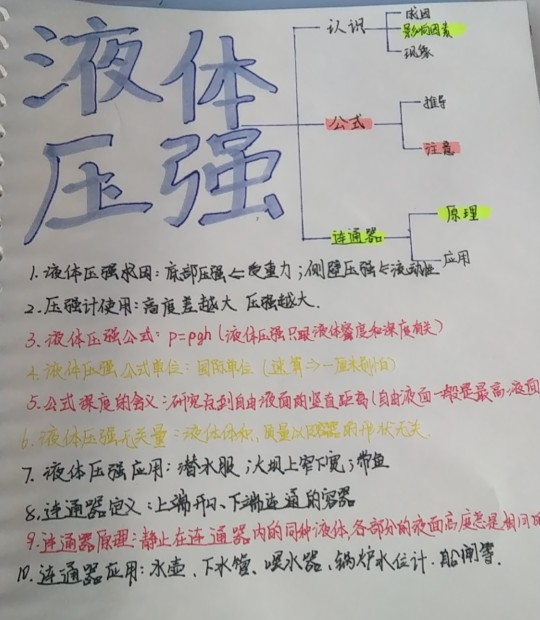 液体
压强
认识
成因
影响因素
现象
公式
推导
注意
连通器
原理
应用
1. 液体压强成因：底部压强⇐受重力；侧壁压强⇐流动性
2. 压强计使用：高度差越大 压强越大.
3. 液体压强公式：p=ρgh（液体压强只跟液体密度和深度有关）
4. 液体压强公式单位：国际单位（速算⇒一厘米
5. 公式深度的含义：研究点到自由液面的竖直距离（自由液面一般是最高液面
6. 液体压强无关量：液体体积、质量以及容器的形状无关
7. 液体压强应用：潜水服；大坝上窄下宽；带鱼
8. 连通器定义：上端开口、下端连通的容器
9. 连通器原理：静止在连通器内的同种液体,各部分的液面高度总是相同的
10. 连通器应用：水壶、下水管、喂水器、锅炉水位计、船闸等.